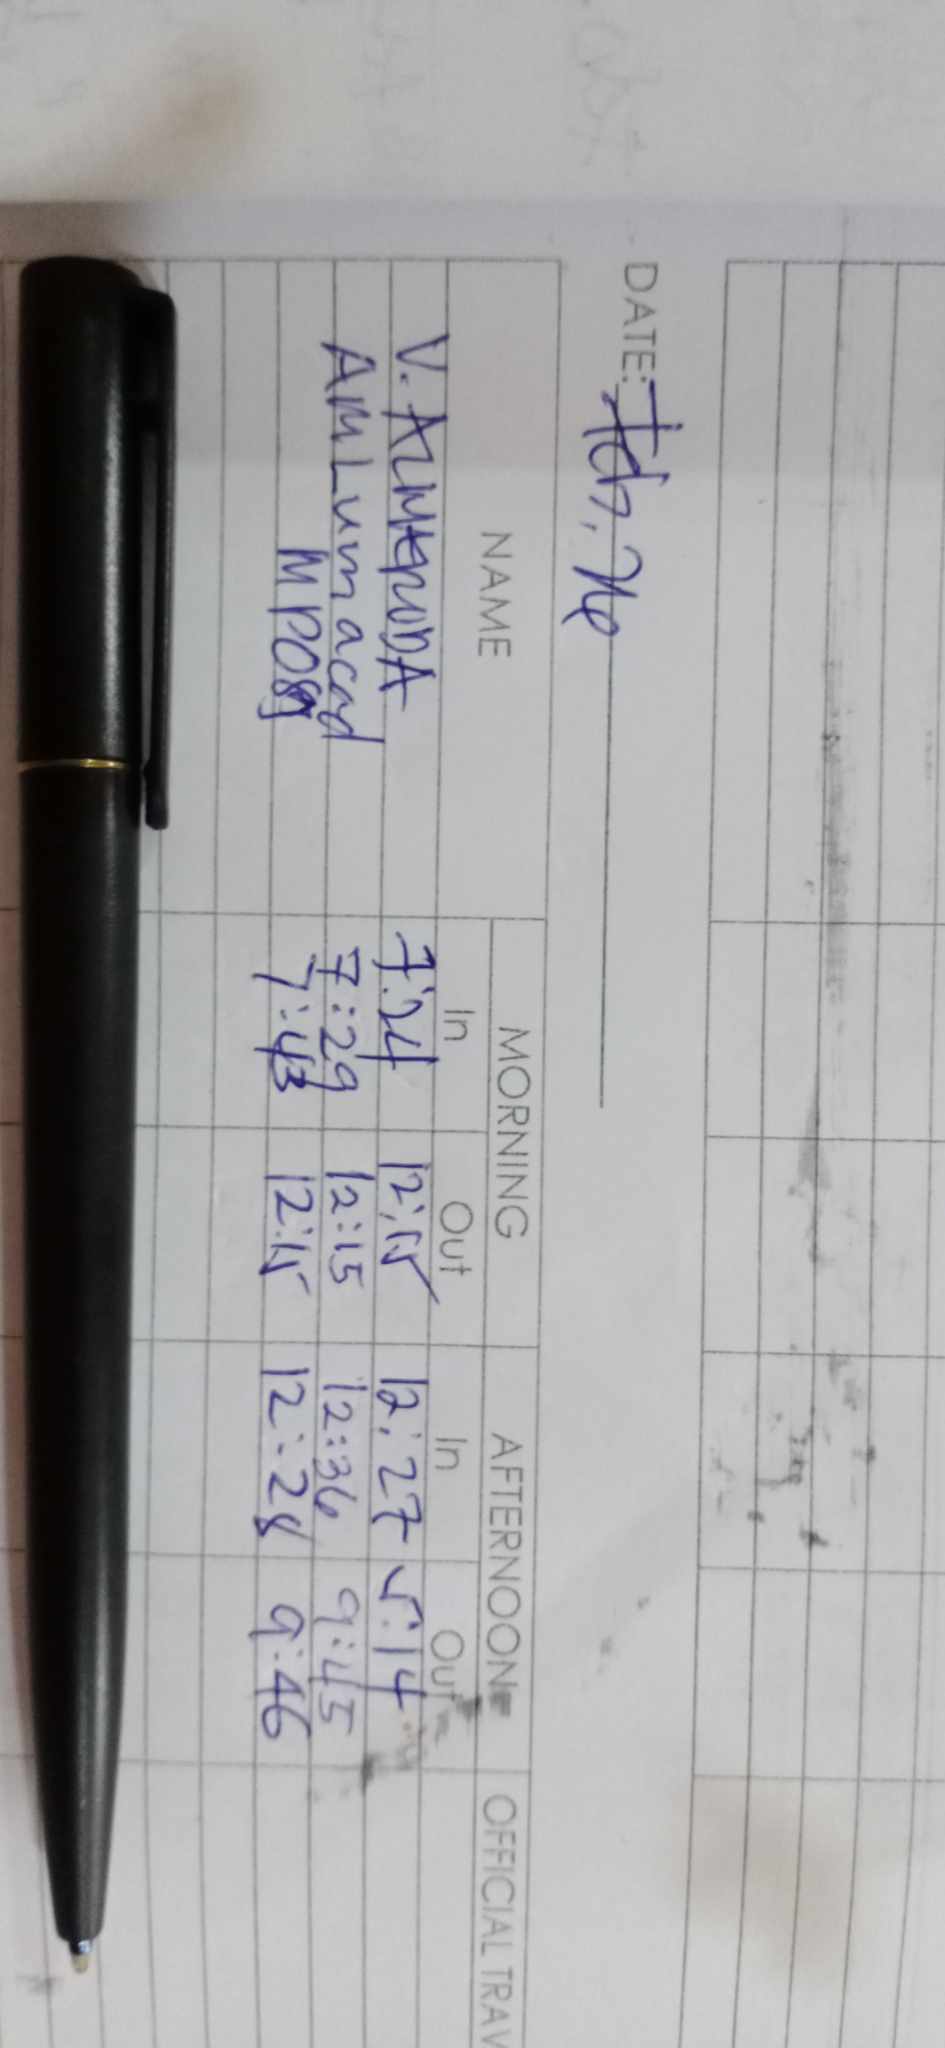 DATE: Feb.
NAME MORNING AFTERNOON OFFICIAL TRAV
In Out In Out
V. ALMARODA 7:24 12:15 12:27 5:14
AMLumacad 7:29 12:15 12:36 9:45
7:43 12:15 12:28 9:46